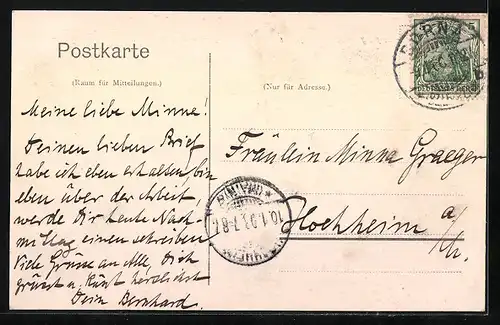 Postkarte
(Raum für Mitteilungen.)
(Nur für Adresse.)
Meine liebe Minna!
Deinen lieben Brief
habe ich eben erhalten bin
eben über der Arbeit
werde Dir heute Nach-
mittag einen schreiben
Viele Grüsse an Alle, Dich
grüsst u. küsst herzlichst
Dein Bernhard.
Fräulein Minna Graeger
Hochheim a/
Th.
5
DEUTSCHES REICH